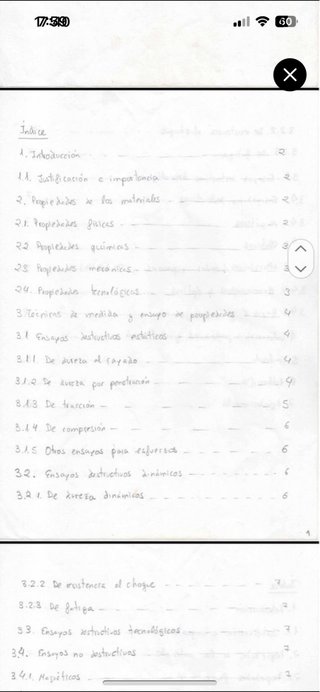 60
Índice
1. Introducción - 2
1.1. Justificación e importancia 2
2. Propiedades de los materiales - 2
2.1. Propiedades físicas - 2
2.2 Propiedades químicas - 3
2.3 Propiedades mecánicas - 3
2.4. Propiedades tecnológicas - 3
3. Técnicas de medida y ensayo de propiedades 4
3.1 Ensayos destructivos estáticos 4
3.1.1 De dureza al rayado 4
3.1.2 De dureza por penetración 4
3.1.3 De tracción - 5
3.1.4 De compresión - 6
3.1.5 Otros ensayos para esfuerzos 6
3.2. Ensayos destructivos dinámicos 6
3.2.1. De dureza dinámicos 6
1
3.2.2 De resistencia al choque 7
3.2.3 De fatiga 7
3.3. Ensayos destructivos tecnológicos 7
3.4. Ensayos no destructivos 7
3.4.1. Magnéticos 7